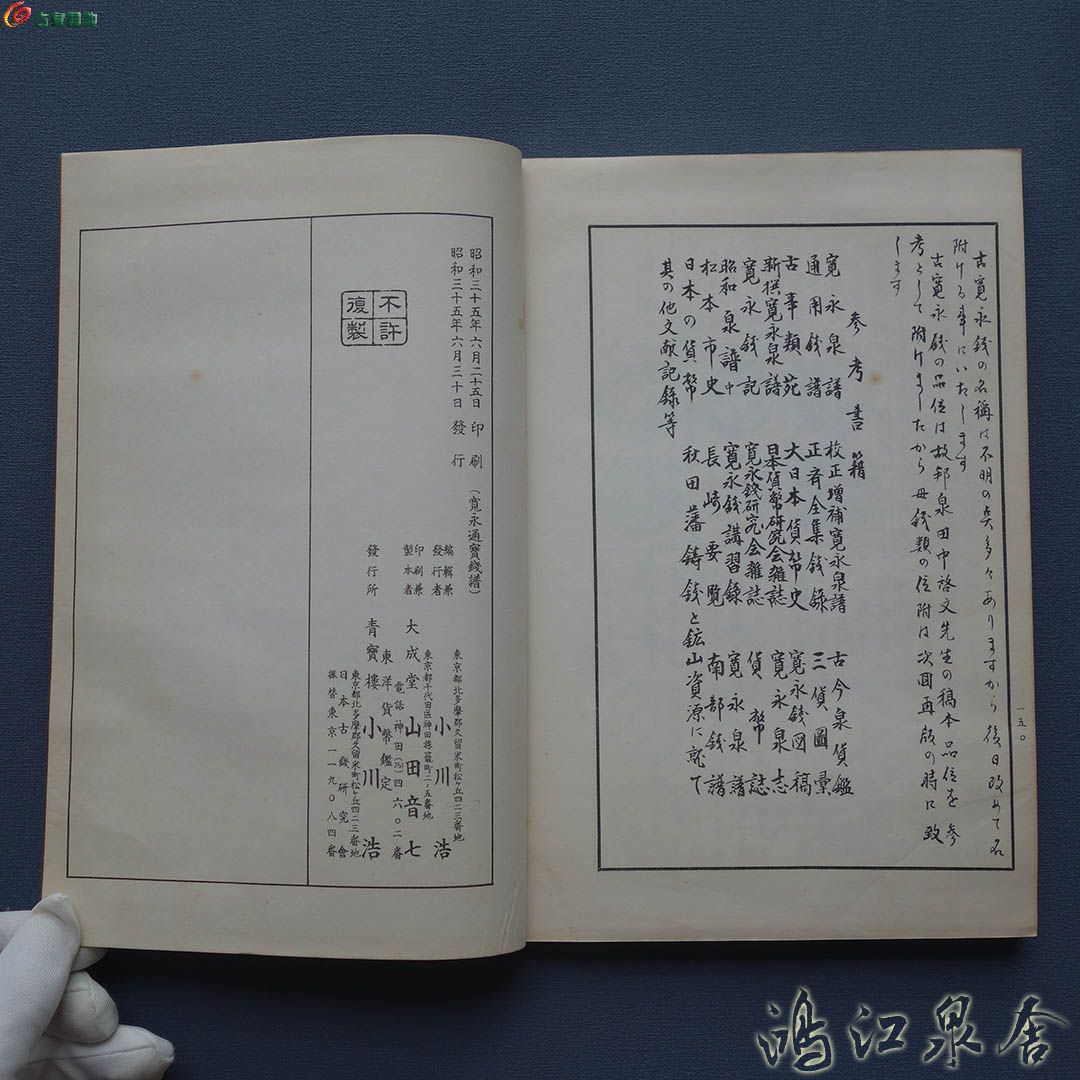 古寛永銭の名称は不明の点多々ありますから後日改めて名
附ける事にいたします
古寛永銭の品位は故郭泉田中啓文先生の稿本品位を参
考として附けましたから母銭類の位附は次回再版の時に致
します
一五〇
参考書籍
寛永泉譜 校正増補寛永泉譜 古今泉貨鑑
通用銭譜 正斉全集銭録 三貨図彙
古事類苑 大日本貨幣史 寛永銭図稿
新撰寛永泉譜 日本貨幣研究会雑誌 寛永泉志
寛永銭記 寛永銭研究会雑誌 貨幣誌
昭和泉譜中 寛永銭講習録 寛永泉譜
松本市史 長崎要覧 南部銭譜
日本の貨幣 秋田藩鋳銭と鉱山資源に就て
其の他文献記録等
昭和三十五年六月二十五日 印刷 (寛永通寶錢譜)
昭和三十五年六月三十日 發行
不許
復製
東京都北多摩郡久留米町松ヶ丘四二三番地
編輯兼
發行者 小川浩
東京都千代田區神田猿籠町二ノ五番地
印刷兼
製本者 大成堂 山田音七
電話神田(25)四六〇二番
東洋貨幣鑑定
發行所 青寶樓 小川浩
東京都北多摩郡久留米町松ヶ丘四二三番地
日本古錢研究會
振替東京一一九〇八四番
鴻江泉舎